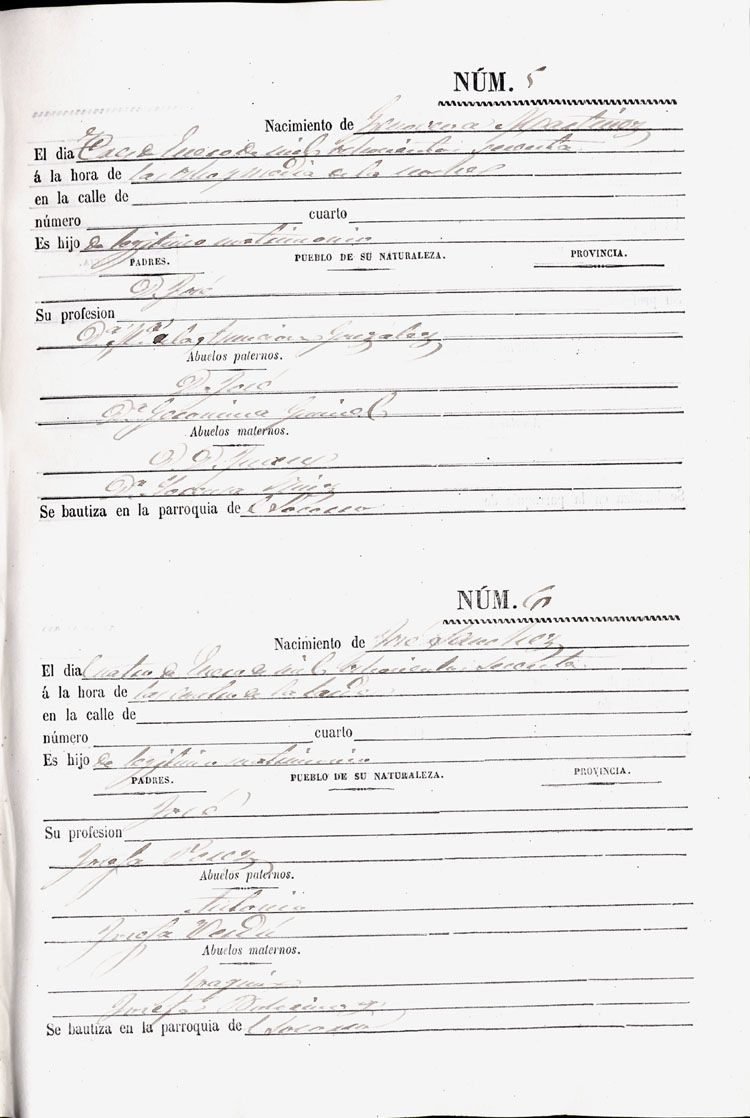 NÚM. 5
Nacimiento de Genoveva Martinez
El dia Tres de Enero de mil ochocientos sesenta
á la hora de las ocho y media de la noche
en la calle de
número cuarto
Es hijo de legitimo matrimonio
PADRES. PUEBLO DE SU NATURALEZA. PROVINCIA.
D. José
Su profesion
D.ª M.ª de la Asuncion Gonzalez
Abuelos paternos.
D. José
D.ª Geronima
Abuelos maternos.
D. Juan
D.ª Ruiz
Se bautiza en la parroquia de el Socorro
NÚM. 6
Nacimiento de José Sanchez
El dia Cuatro de Enero de mil ochocientos sesenta
á la hora de las cuatro de la tarde
en la calle de
número cuarto
Es hijo de legitimo matrimonio
PADRES. PUEBLO DE SU NATURALEZA. PROVINCIA.
José
Su profesion
Josefa Perez
Abuelos paternos.
Antonio
Josefa Verdú
Abuelos maternos.
Joaquin
Josefa
Se bautiza en la parroquia de el Socorro